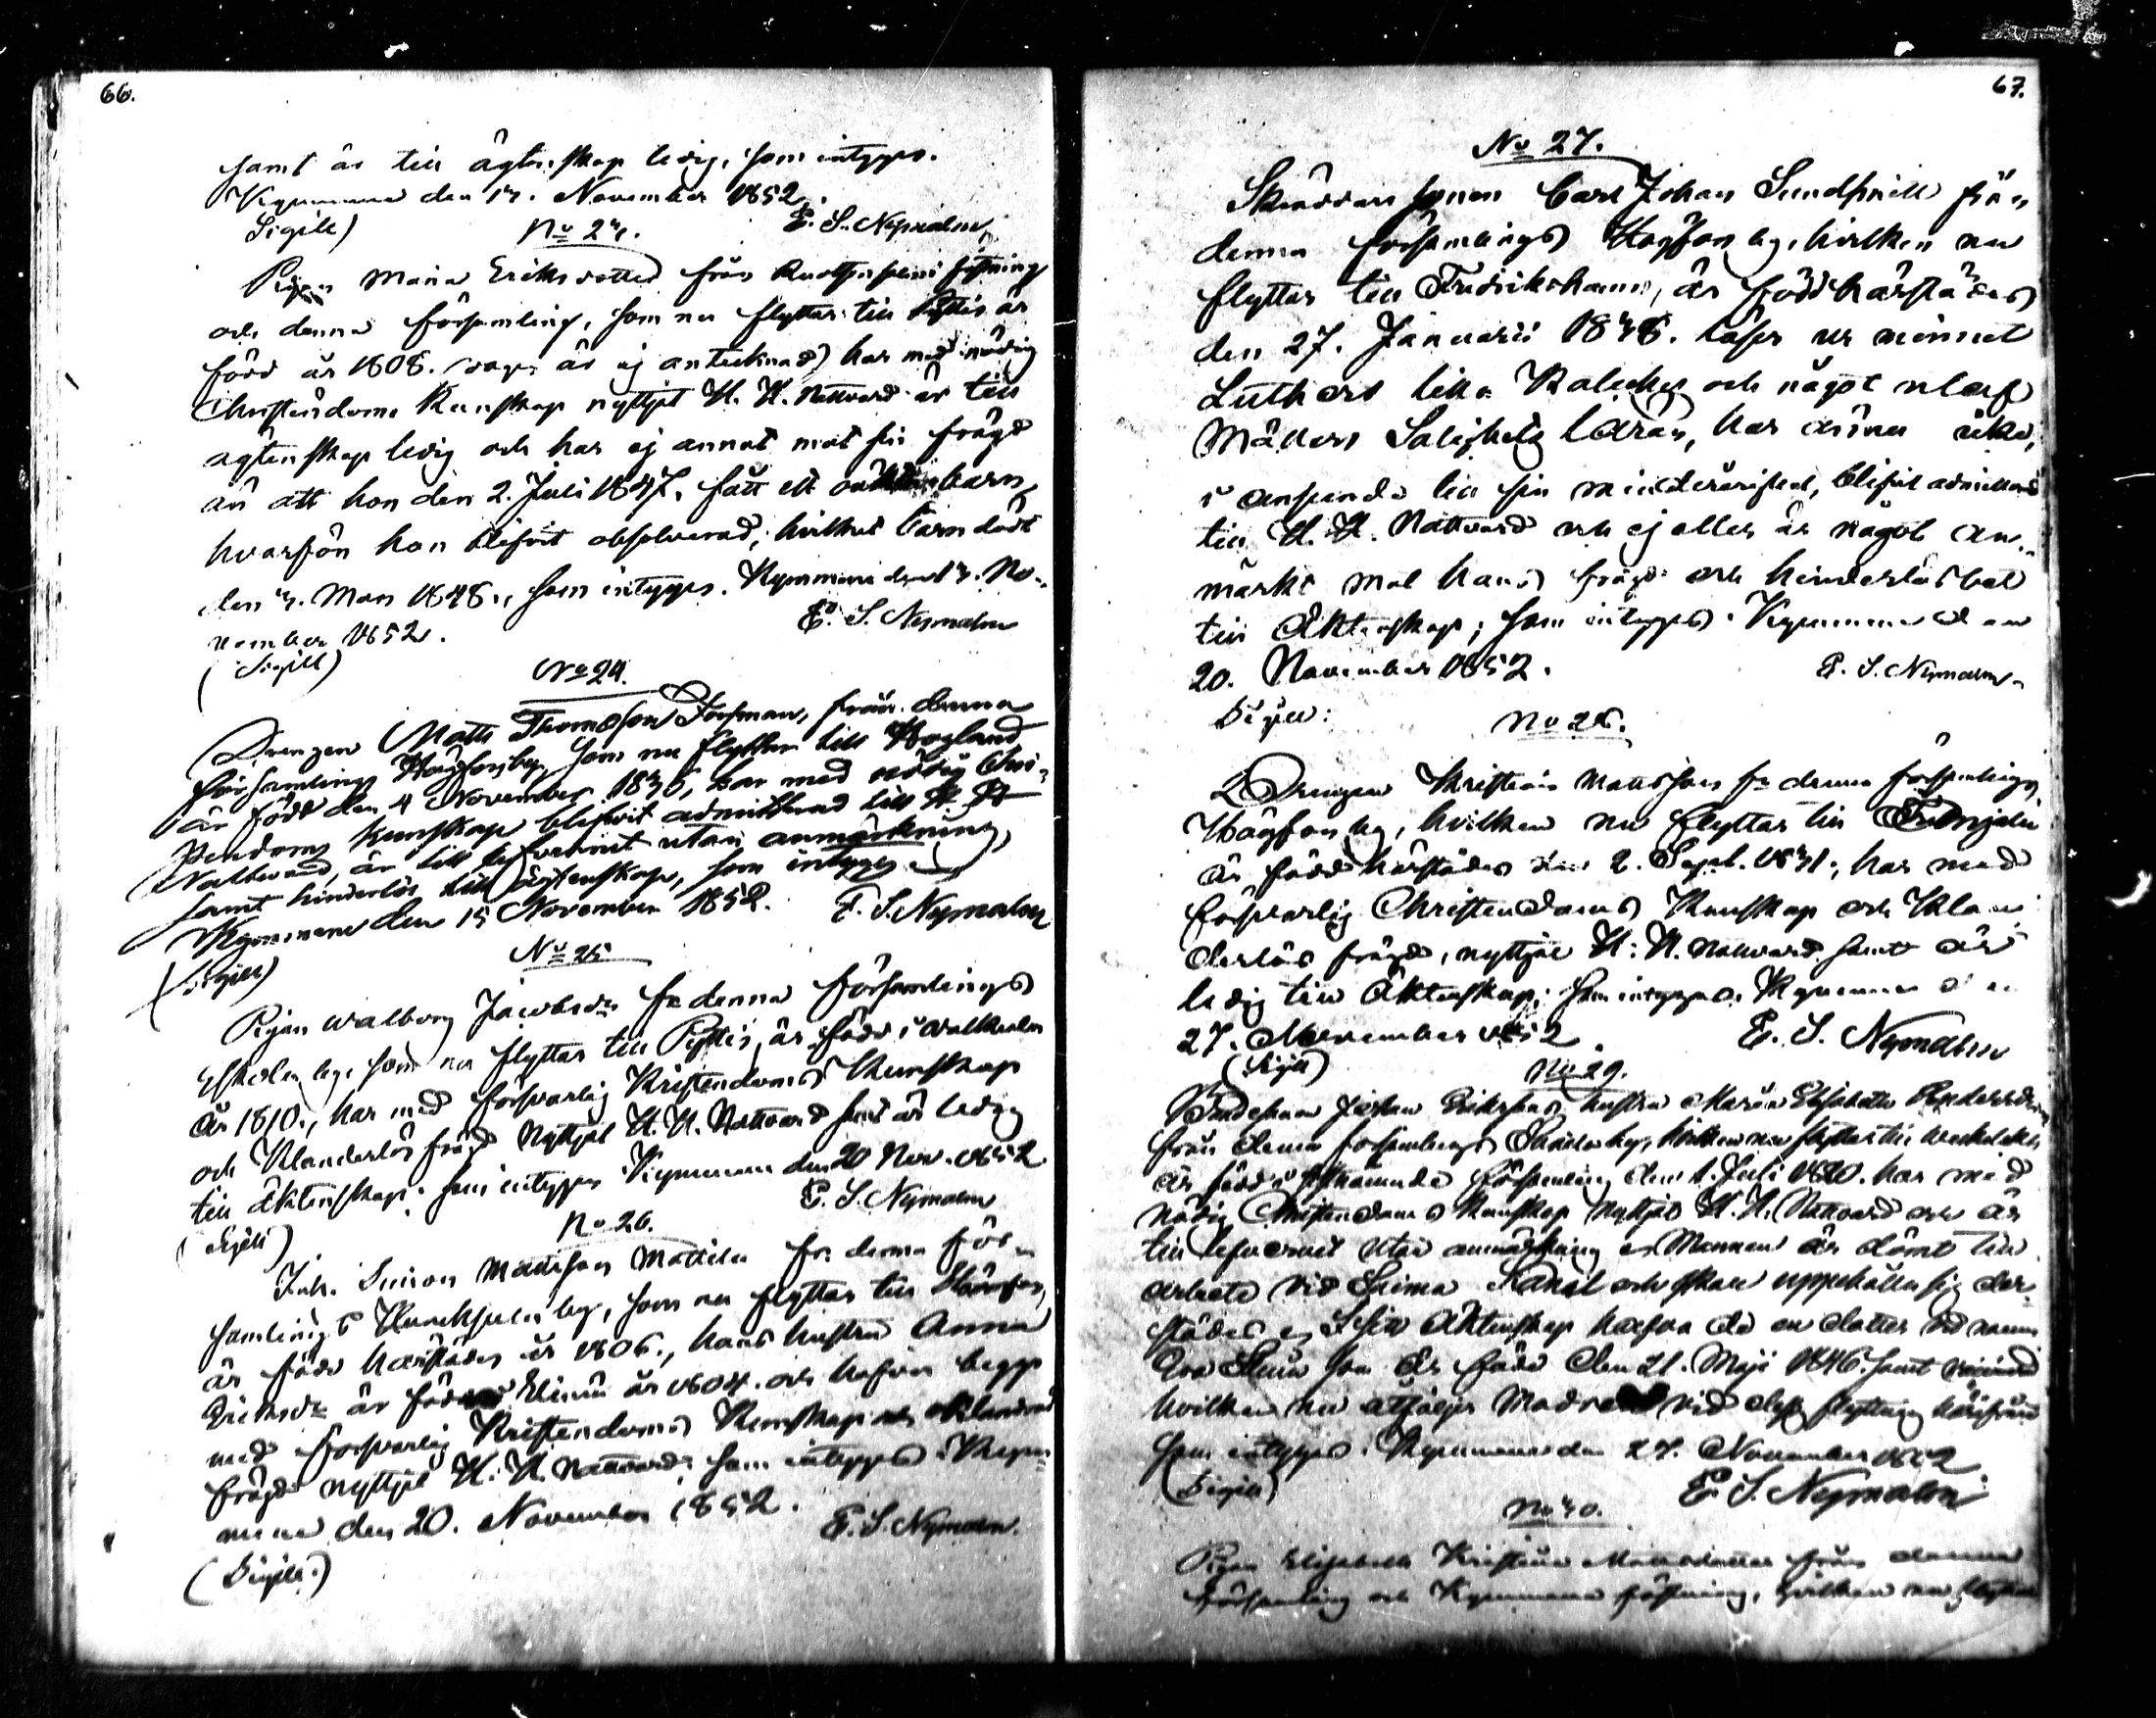 66.
samt är till ägtenskap ledig, som intyges.
Kymmene den 13. November 1852.
Sigill) E. S. Nymalm
No 23.
Pigan Maria Eriksdotter från fästning
och denna församling, som nu flyttar till Pyttis är
född år 1808. dagen är ej antecknad) har med nödig
Christendoms Kunskap nyttjat H. H. Nattvard är till
ägtenskap ledig och har ej annat mot sin frägd
än att hon den 2. Juli 1847. fått ett barn,
hvarför hon blifvit absolverad, hvilket barn dödt
den 3. Mars 1848., som intyges. Kymmene den 13. No-
vember 1852. E. S. Nymalm
(Sigill)
No 24.
Drengen Matts Thomasson Forsman, från denna
församlings Högforsby, som nu flyttar till Hogland
är född den 4 November 1830, har med nödig Chri-
stendoms Kunskap blifwit admitterad till H. H
Nattward, är till lefvernet utan anmärkning,
samt hinderlös till ägtenskap, som intyges
Kymmene den 15 November 1852. E. S. Nymalm
(Sigill)
No 25
Pigan Walborg Jacobsdr fr denna församlings
by, som nu flyttar till Pyttis, är född i Walkeala
år 1810., har med försvarlig Kristendoms Kunskap
och Klanderlös frägd Nyttjat H. H. Nattvard samt är ledig
till äktenskap; som intyges Kymmene den 20 Nov. 1852
(Sigill) E. S. Nymalm
No 26.
Inh. Simon Mattsson Mattila fr. denna för-
samlings by, som nu flyttar till
är född härstädes år 1806., hans hustru Anna
Eriksdr är född i Elimä år 1804. och hafva begge
med försvarlig Kristendoms Kunskap och
frägd nyttjat H. H. Nattvard; som intyges. Kym-
mene den 20. November 1852.
E. S. Nymalm.
(Sigill.)
67.
No 27.
Skräddare sonen Carl Johan Sundqvist från
denna församlings Högfors by, hvilken nu
flyttar till Fredrikshamn, är född härstädes
den 27. Januarii 1838. läser ur minnet
Luthers lilla Kateches och något utaf
Möllers Salighets Läran, har ännu icke,
i anseende till sin minderårighet, blifvit admitterad
till H. H. Nattvard och ej eller är något an-
märkt mot hans frägd och hinderlöshet
till Äktenskap; som intyges. Kymmene den
20. November 1852. E. S. Nymalm
Sigill:
No 28.
Drengen Kristian Mattsson fr denna församlings
Högfors by, hvilken nu flyttar till
är född härstädes den 2. Sept. 1831; har med
försvarlig Christendoms Kunskap och Klan-
derlös frägd, nyttjat H: H. Nattvard samt är
ledig till Äktenskap; som intyges. Kymmene den
27. November 1852. E. S. Nymalm
(Sigill)
No 29.
Johan Erikssons hustru Maria Elisabeth Andersdr
från denna församlings by, hvilken nu flyttar till
är född i församling den 1. Juli 1820. har med
nödig Christendoms Kunskap nyttjat H. H. Nattvard och är
till lefvernet utan anmärkning. Mannen är dömt till
arbete vid Saima Kanal och skall uppehålla sig der-
städes. I sin Äktenskap hafva de en dotter vid namn
Eva Lena som är född den 21. Maji 1846. samt
hvilken nu åtföljer Modren vid dess flyttning härifrån
som intyges. Kymmene den 27. November 1852
(Sigill) E. S. Nymalm
No 30.
Pigan Elisabeth Kristina Mattsdotter från denna
församling och Kymmene fästning, hvilken nu flyttar